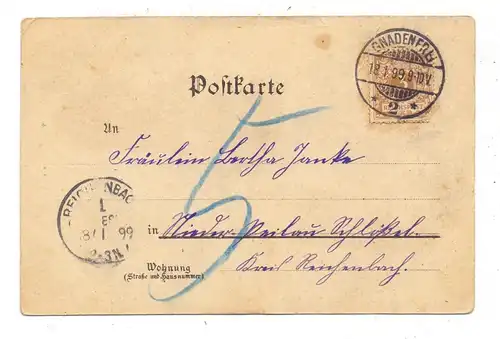 GNADENFREI
18.1.99.9-10V.
* 2 *
Postkarte
An
Fräulein Bertha Janke
in Nieder-Peilau Schlössel.
Wohnung
(Straße und Hausnummer)
Kreis Reichenbach.
5
REICHENBACH
18/1 99
2-3N.